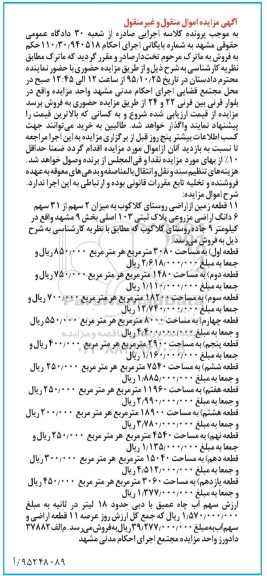 آگهی مزایده اموال منقول و غیر منقول
به موجب پرونده کلاسه اجرایی صادره از شعبه ۳۰ دادگاه عمومی
حقوقی مشهد به شماره بایگانی اجرای احکام ۱۱۰/۳۰/۹۴۰۵۱۸ حکم
به فروش به ماترک مرحوم تخت‌دار صادر و مقرر گردید که ماترک مطابق
نظریه کارشناسی به شرح ذیل و از طریق مزایده حضوری با حضور نماینده
محترم دادستان در تاریخ ۹۵/۱۰/۲۵ از ساعت ۱۲ الی ۱۲:۴۵ صبح در
محل مجتمع قضایی اجرای احکام مدنی مشهد واحد مزایده واقع در
بلوار قرنی بین قرنی ۲۲ و ۲۴ از طریق مزایده حضوری به فروش برسد
مزایده از قیمت ارزیابی شده شروع و به کسانی که بالاترین قیمت را
پیشنهاد نمایند واگذار خواهد شد. طالبین به خرید می‌توانند جهت
کسب اطلاعات بیشتر پنج روز قبل از برگزاری مزایده به این اجرا مراجعه
تا نسبت به بازدید آنان از اموال مورد مزایده اقدام گردد ضمنا حداقل
۱۰٪ از بهای مورد مزایده نقدا و فی‌المجلس از برنده وصول خواهد شد.
هزینه‌های تنظیم سند و نقل و انتقال بالمناصفه و بدهی‌های معوقه به عهده
فروشنده و تخلیه تابع مقررات قانونی بوده و ارتباطی به این اجرا ندارد.
شرح اموال مزایده:
۱۱ قطعه زمین از اراضی روستای کلاکوب به میزان ۲ سهم از ۳۱ سهم
۶ دانگ اراضی مزروعی پلاک ثبتی ۱۰۳ اصلی بخش ۹ مشهد واقع در
کیلومتر ۹ جاده روستای کلاکوب که مطابق با نظریه کارشناسی به شرح
ذیل به فروش می‌رسد:
قطعه اول) به مساحت ۳۰۸۰ مترمربع هر متر مربع ۸۵۰/۰۰۰ ریال و
جمعا به مبلغ ۲/۶۱۸/۰۰۰/۰۰۰ ریال
قطعه دوم) به مساحت ۱۴۸۰ متر مربع هر متر مربع ۷۵۰/۰۰۰ ریال و
جمعا به مبلغ ۱/۱۱۰/۰۰۰/۰۰۰ ریال
قطعه سوم) به مساحت ۱۸۲۰۰ متر مربع هر متر مربع ۷۰۰/۰۰۰ ریال و
جمعا به مبلغ ۱۲/۷۴۰/۰۰۰/۰۰۰ ریال
قطعه چهارم) به مساحت ۸۰۰۰ متر مربع هر متر مربع ۵۵۰/۰۰۰ ریال
و جمعا به مبلغ ۴/۴۰۰/۰۰۰/۰۰۰ ریال
قطعه پنجم) به مساحت ۲۹۰۰ متر مربع هر متر مربع ۴۰۰/۰۰۰ ریال و
جمعا به مبلغ ۱/۱۶۰/۰۰۰/۰۰۰ ریال
قطعه ششم) به مساحت ۷۵۴۰ متر مربع هر متر مربع ۲۵۰/۰۰۰ ریال
و جمعا به مبلغ ۱/۸۸۵/۰۰۰/۰۰۰ ریال
قطعه هفتم) به مساحت ۱۱۹۶۰ متر مربع هر متر مربع ۲۵۰/۰۰۰ ریال
و جمعا به مبلغ ۲/۹۹۰/۰۰۰/۰۰۰ ریال
قطعه هشتم) به مساحت ۱۸۹۰۰ متر مربع هر متر مربع ۲۰۰/۰۰۰ ریال
و جمعا به مبلغ ۳/۷۸۰/۰۰۰/۰۰۰ ریال
قطعه نهم) به مساحت ۴۵۴۰ متر مربع هر متر مربع ۲۵۰/۰۰۰ ریال و
جمعا به مبلغ ۱/۱۳۵/۰۰۰/۰۰۰ ریال
قطعه دهم) به مساحت ۱۵۰۴۰ متر مربع هر متر مربع ۳۰۰/۰۰۰ ریال
و جمعا به مبلغ ۴/۵۱۲/۰۰۰/۰۰۰ ریال
قطعه یازدهم) به مساحت ۳۰۶۰ متر مربع هر متر مربع ۴۵۰/۰۰۰ ریال
و جمعا به مبلغ ۱/۳۷۷/۰۰۰/۰۰۰ ریال
ارزش سهم آب چاه عمیق با دبی حدود ۱۸ لیتر در ثانیه به مبلغ
۱/۵۷۰/۰۰۰/۰۰۰ ریال که جمع کل ارزش روز عرصه ۱۱ قطعه اراضی و
سهم آب به مبلغ ۳۹/۲۷۷/۰۰۰/۰۰۰ ریال به فروش می‌رسد. م الف ۳۷۸۸۲
دادورز واحد مزایده مجتمع اجرای احکام مدنی مشهد
۹۵۲۴۸۰۸۹/آ